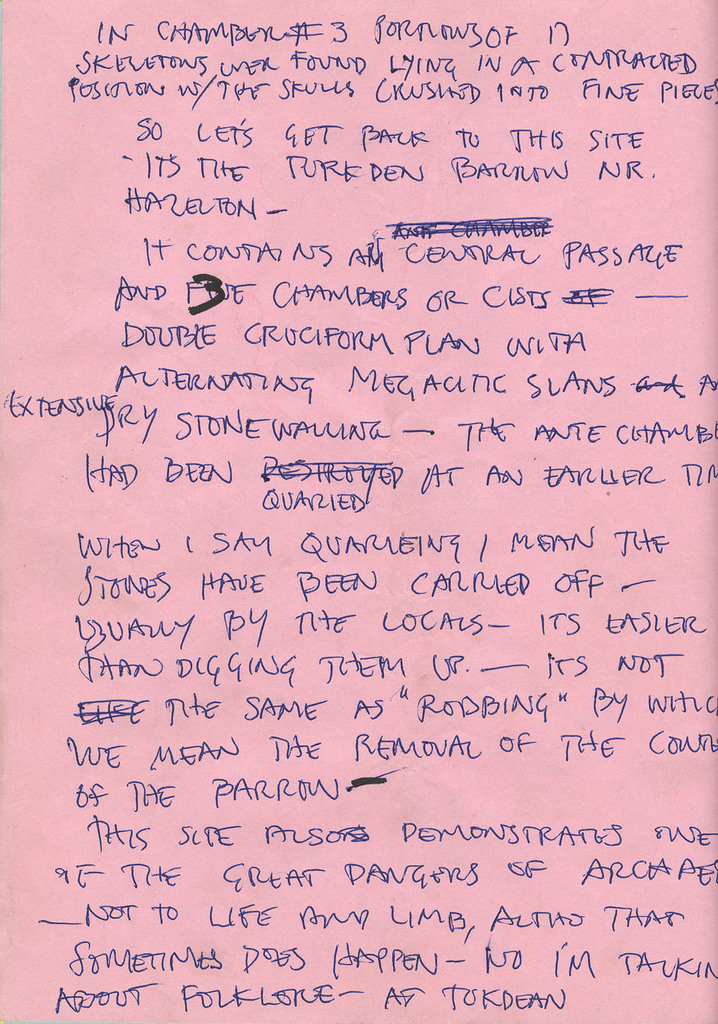 IN CHAMBER # 3 PORTIONS OF 17
SKELETONS WER FOUND LYING IN A CONTRACTED
POSITION W/ THE SKULLS CRUSHED INTO FINE PIECES
SO LET'S GET BACK TO THIS SITE
- ITS THE TURKDEN BARROW NR.
HAZELTON —
IT CONTAINS AN CENTRAL PASSAGE
AND 3 CHAMBERS OR CISTS —
DOUBLE CRUCIFORM PLAN WITH
ALTERNATING MEGALITIC SLABS A
EXTENSIVE DRY STONE WALLING — THE ANTE CHAMBE
HAD BEEN QUARIED AT AN EARLIER TIM
WHEN I SAY QUARIEING I MEAN THE
STONES HAVE BEEN CARRIED OFF —
USUALLY BY THE LOCALS — ITS EASIER
THAN DIGGING THEM UP. — ITS NOT
THE SAME AS "ROBBING" BY WHIC
WE MEAN THE REMOVAL OF THE CONTE
OF THE BARROW —
THIS SITE ALSO DEMONSTRATES ONE
OF THE GREAT DANGERS OF ARCHAE
— NOT TO LIFE AND LIMB, ALTHO THAT
SOMETIMES DOES HAPPEN — NO I'M TALKIN
ABOUT FOLKLORE — AT TURKDEAN